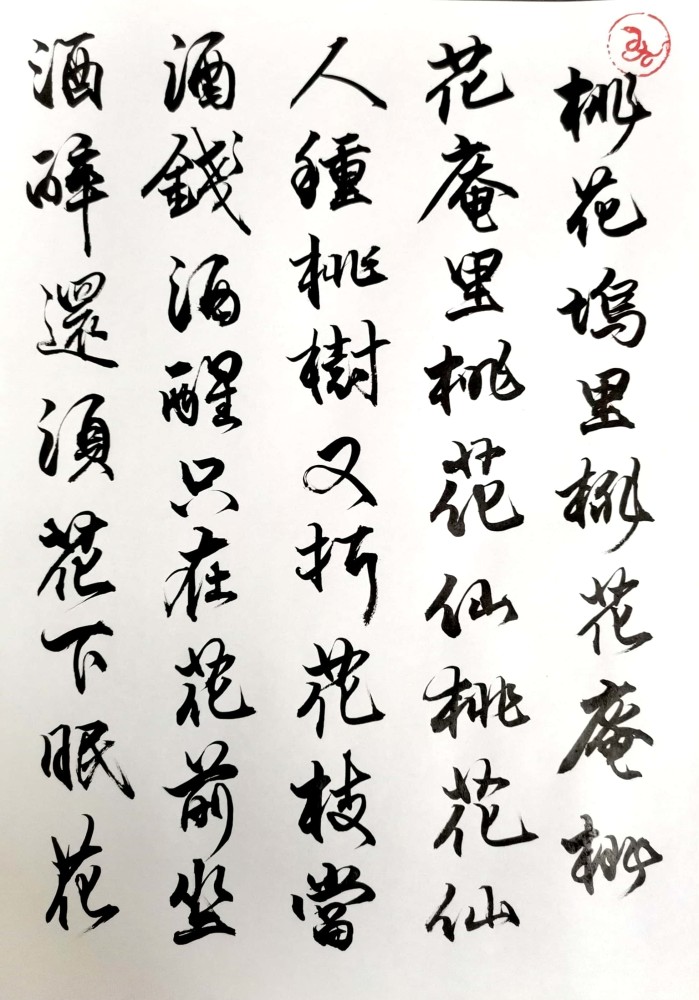 桃花塢里桃花庵桃
花庵里桃花仙桃花仙
人種桃樹又折花枝當
酒錢酒醒只在花前坐
酒醉還須花下眠花